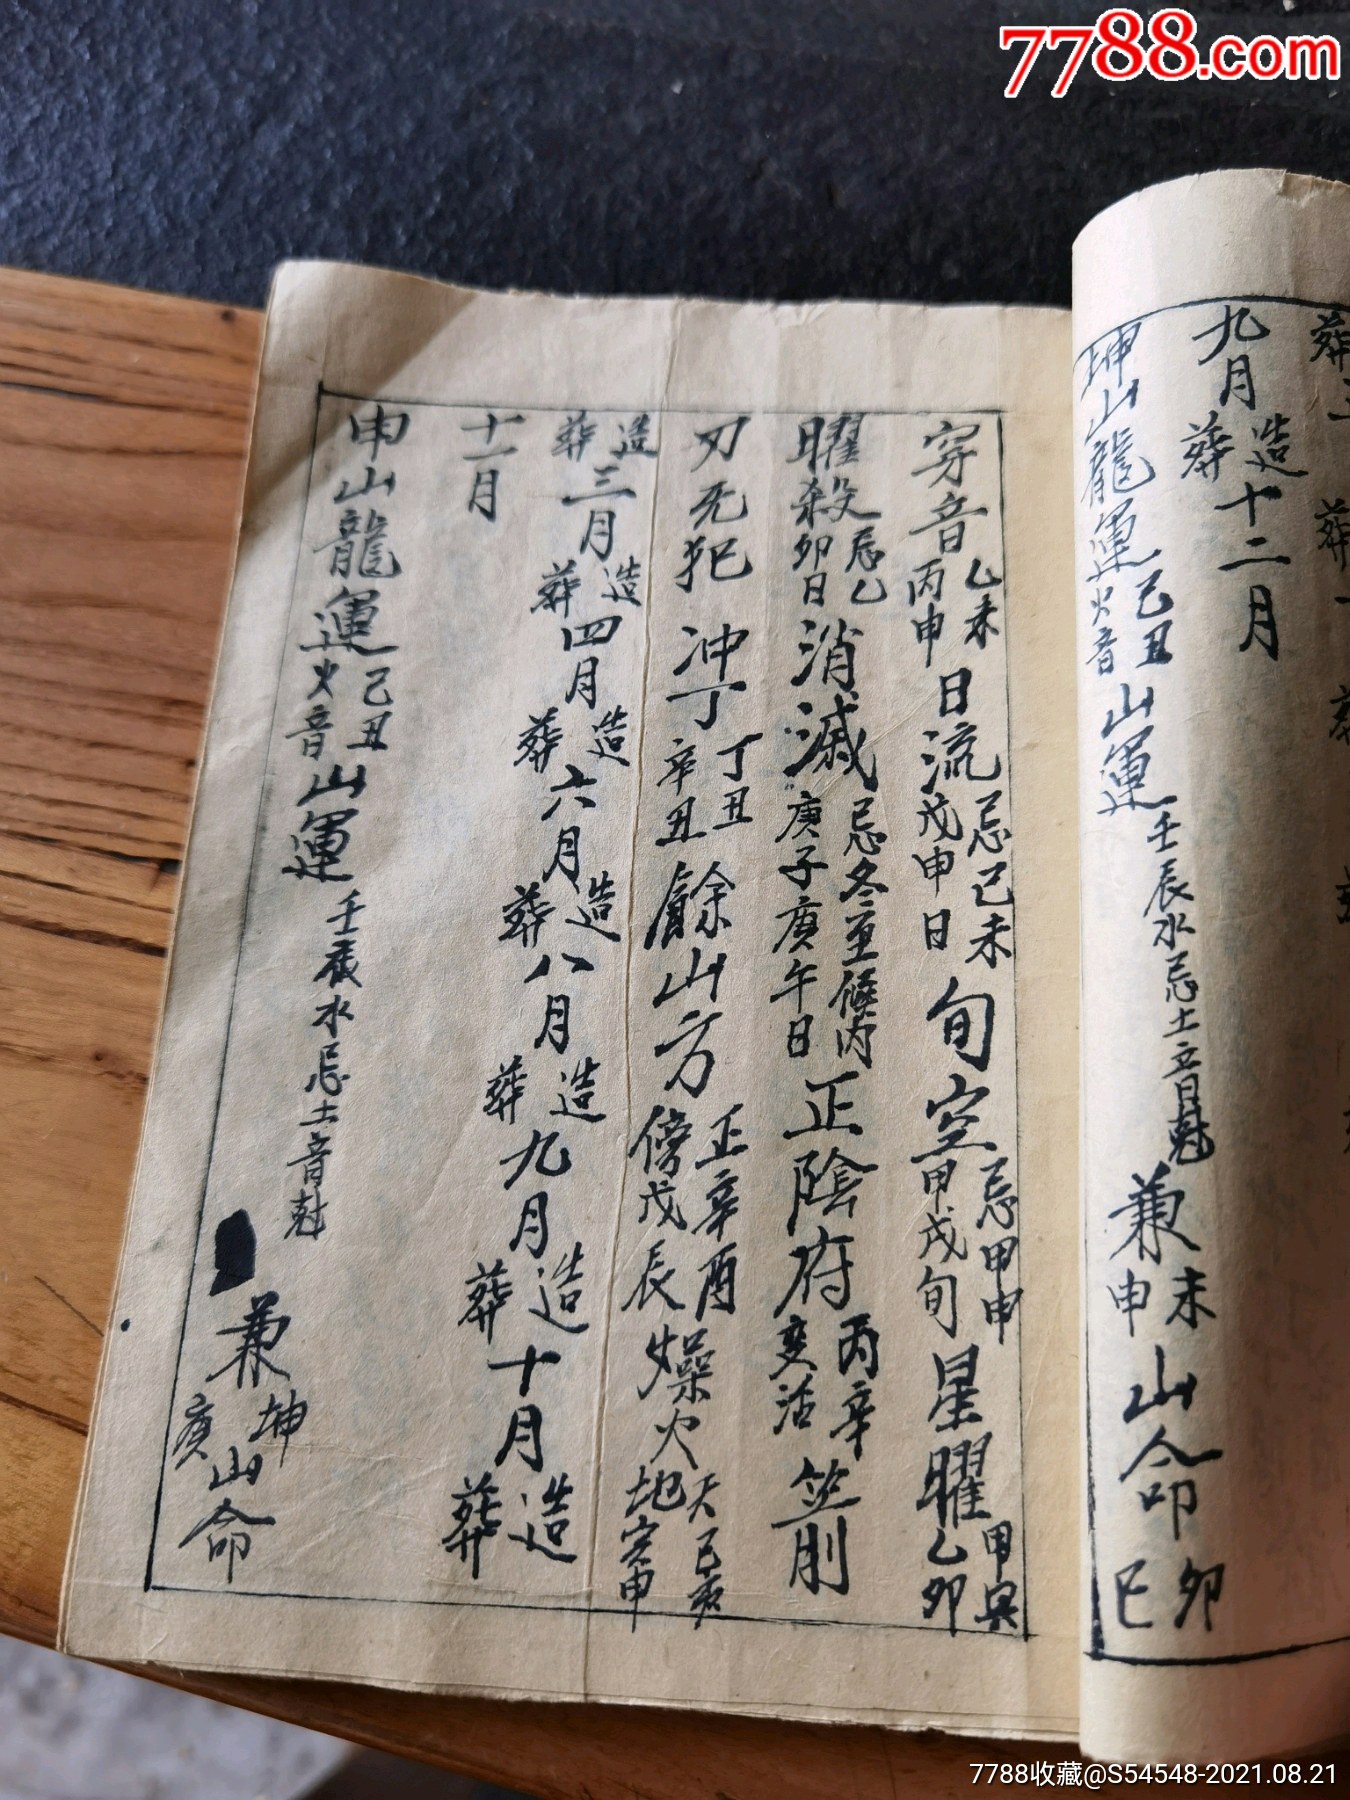 7788.com
九月造葬十二月
坤山龍運己丑火音山運壬辰水忌土音尅兼未申山命卯巳
穿音乙未丙申日流忌己未戊申日旬空忌甲申甲戌旬星曜甲寅乙卯
曜殺忌乙卯日消滅忌冬至後丙庚子庚午日正陰府丙辛变活坐削
刃死犯冲丁丁丑辛丑餘山方正辛酉傍戊辰燥火天己亥地寅申
造葬三月造葬四月造葬六月造葬八月造葬九月造葬十月造葬
十一月
申山龍運己丑火音山運壬辰水忌土音尅兼坤庚山命
7788收藏@S54548-2021.08.21